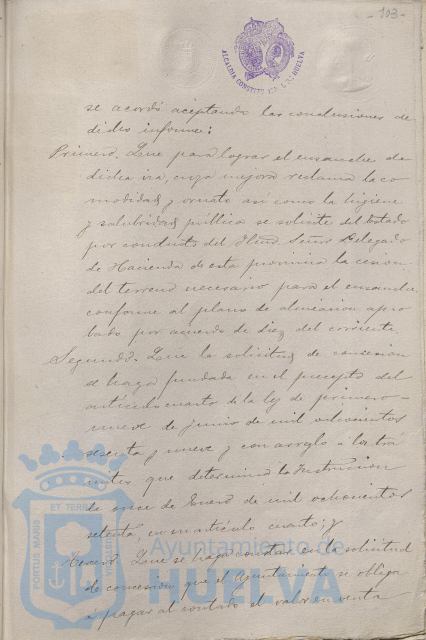 - 103 -
ALCALDIA CONSTITUCIONAL DE HUELVA
se acordó aceptando las conclusiones de
dicho informe:
Primero. Que para lograr el ensanche de
dicha via, cuya mejora reclama la co
modidad y ornato asi como la higiene
y salubridad pública se solicite del Estado
por conducto del Ilmo Señor Delegado
de Hacienda de esta provincia la cesion
del terreno necesario para el ensanche,
conforme al plano de alineacion apro
bado por acuerdo de diez del corriente.
Segundo. Que la solicitud de concesion
se haga fundada en el precepto del
artículo cuarto de la ley de primero
nueve de junio de mil ochocientos
sesenta y nueve y con arreglo a los trá
mites que determina la Instruccion
de once de Enero de mil ochocientos
setenta, en su artículo cuarto; y
Tercero. Que se haga constar en la solicitud
de concesion que el Ayuntamiento se obliga
á pagar al contado el valor en venta
PORTUS MARIS ET TERRAE
Ayuntamiento de
HUELVA